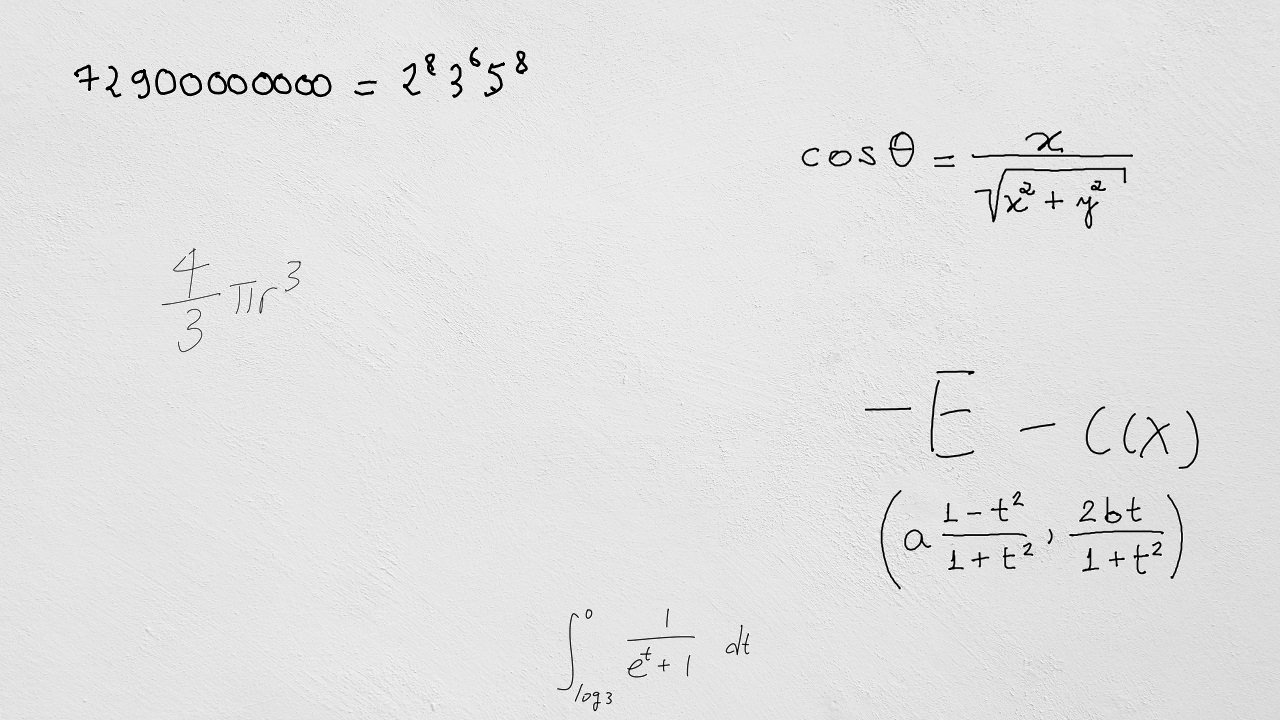 72900000000 = 2^8 3^6 5^8
cos θ = x / √(x² + y²)
4/3 πr³
− E − C(x)
(a (1 − t²)/(1 + t²), 2bt/(1 + t²))
∫_{log 3}^{0} 1/(e^t + 1) dt